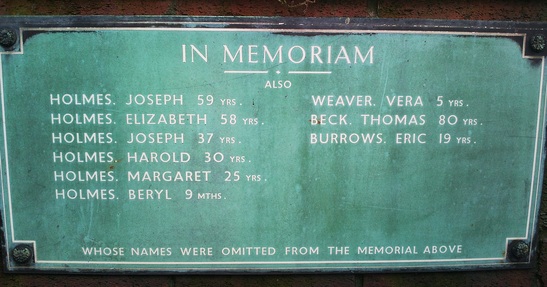 IN MEMORIAM
ALSO
HOLMES. JOSEPH 59 YRS.
HOLMES. ELIZABETH 58 YRS.
HOLMES. JOSEPH 37 YRS.
HOLMES. HAROLD 30 YRS.
HOLMES. MARGARET 25 YRS.
HOLMES. BERYL 9 MTHS.
WEAVER. VERA 5 YRS.
BECK. THOMAS 80 YRS.
BURROWS. ERIC 19 YRS.
WHOSE NAMES WERE OMITTED FROM THE MEMORIAL ABOVE